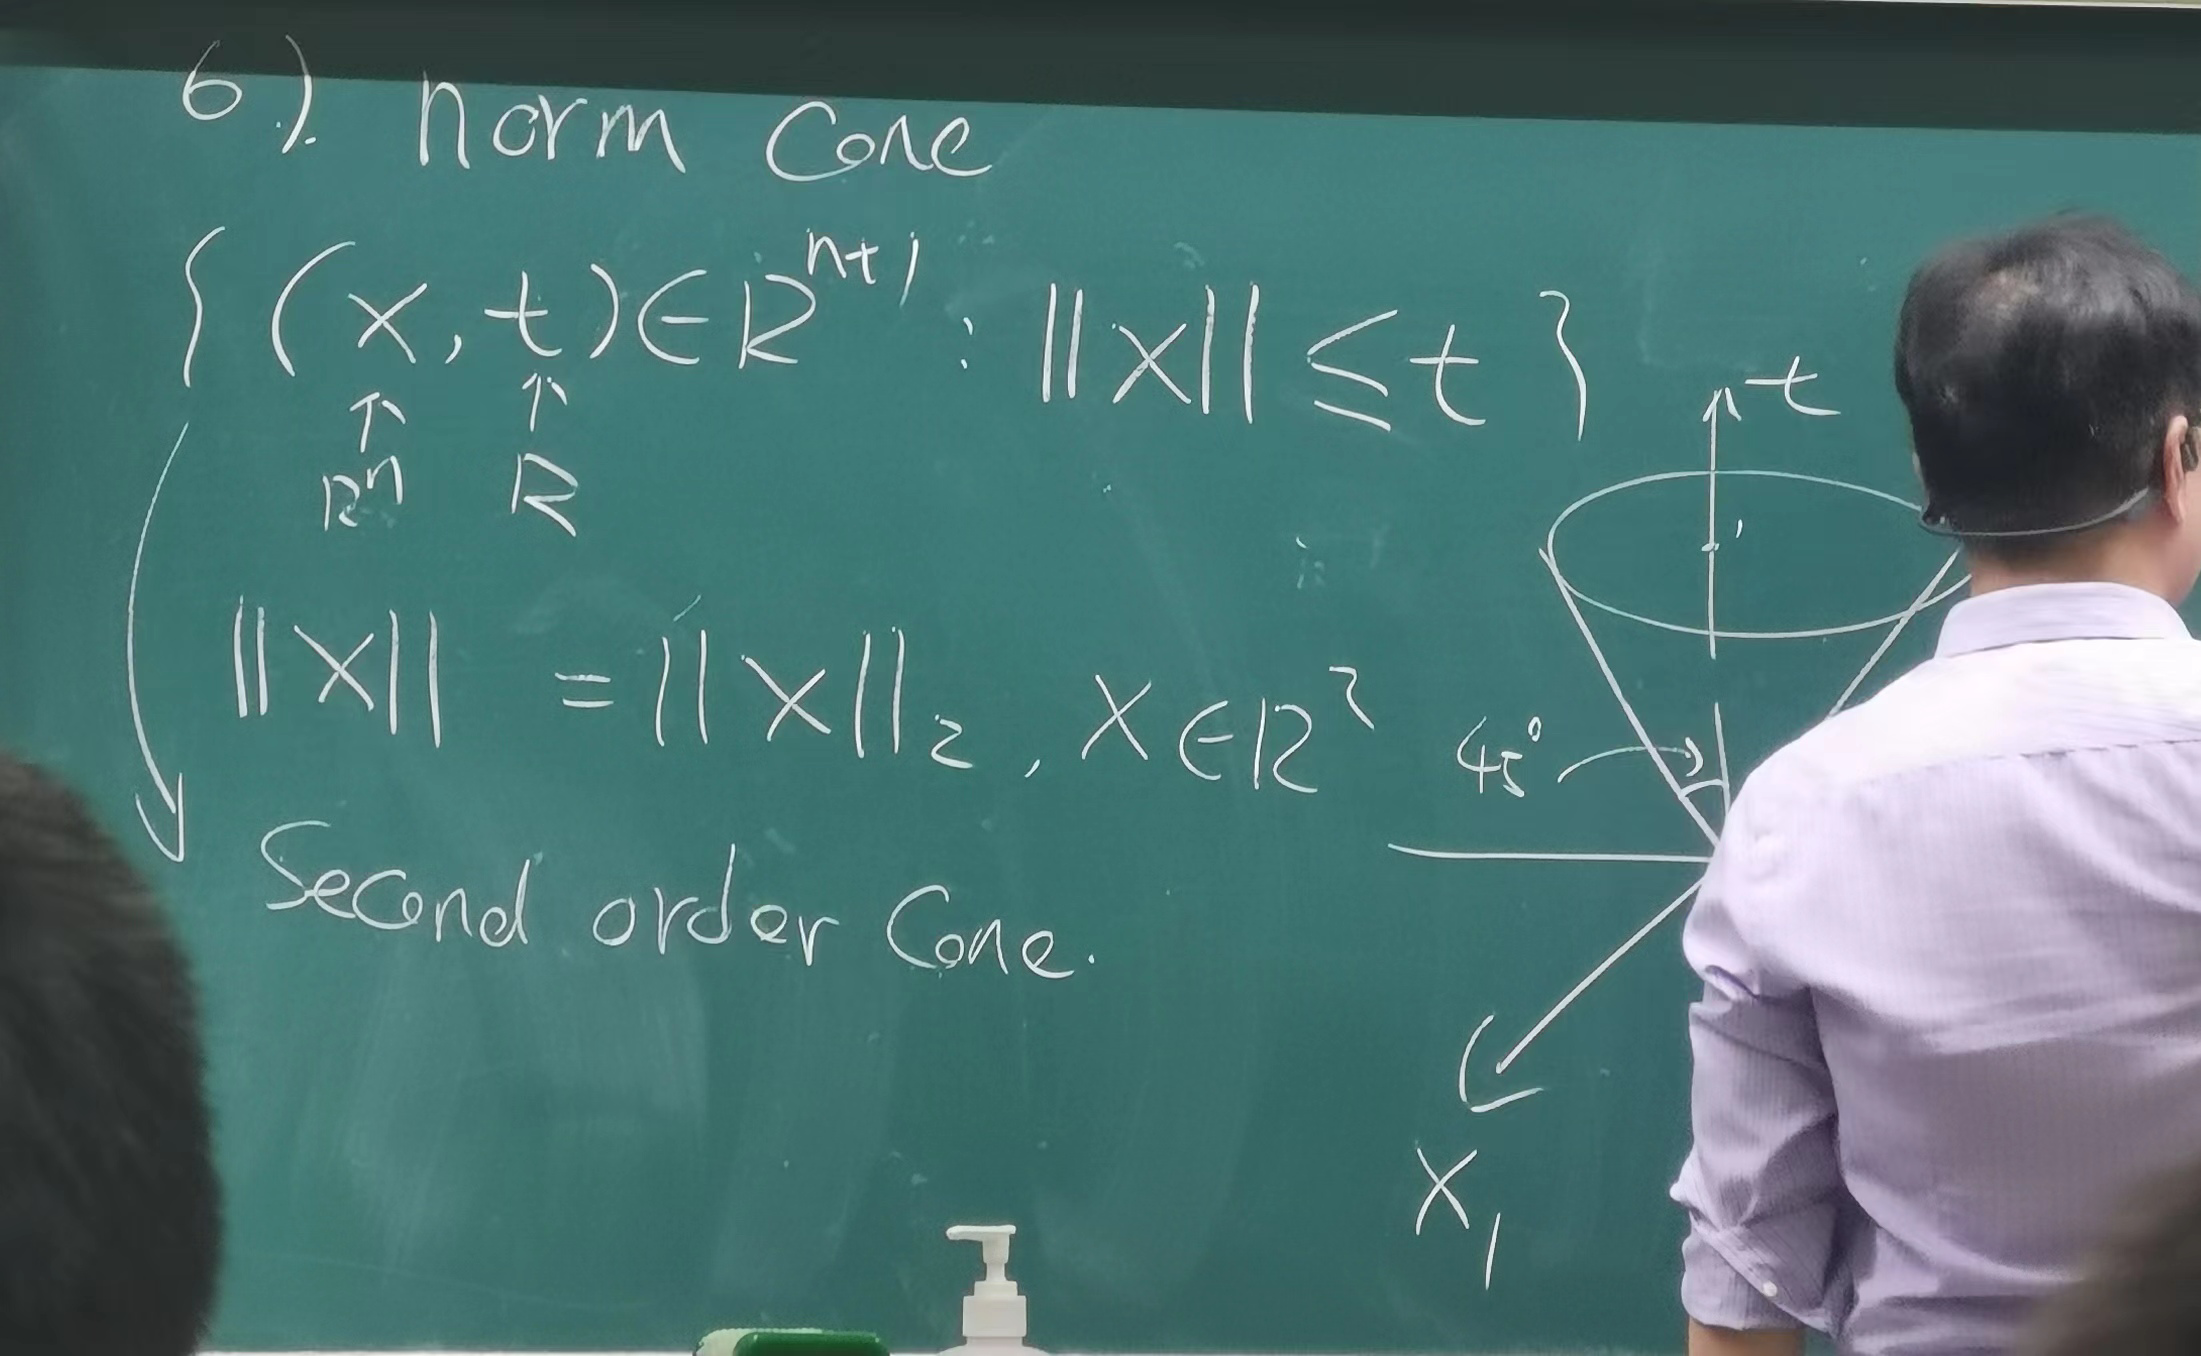 6). norm cone
{ (x, t) ∈ R^{n+1} : ||x|| ≤ t }
↑ ↑
R^n R
||x|| = ||x||_2, x ∈ R^2
Second order Cone.
t
1
45°
x_1